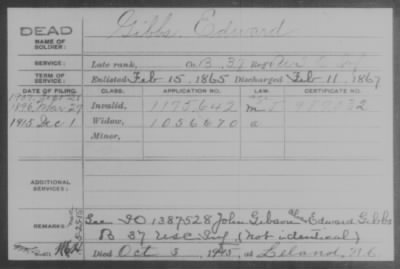 DEAD
NAME OF SOLDIER:
Gibbs, Edward
SERVICE:
Late rank, Co. B. 37 Reg't
TERM OF SERVICE:
Enlisted Feb 15, 1865 Discharged Feb 11, 1867
DATE OF FILING. CLASS. APPLICATION NO. LAW. CERTIFICATE NO.
1896 Invalid, 1175,642
1915 Dec 1. Widow, 1056670 a
Minor,
ADDITIONAL SERVICES:
REMARKS: See IO 1387528 John Gibson als Edward Gibbs
B 37 USC Inf (not identical)
Died Oct 3, 1915, at N.C.